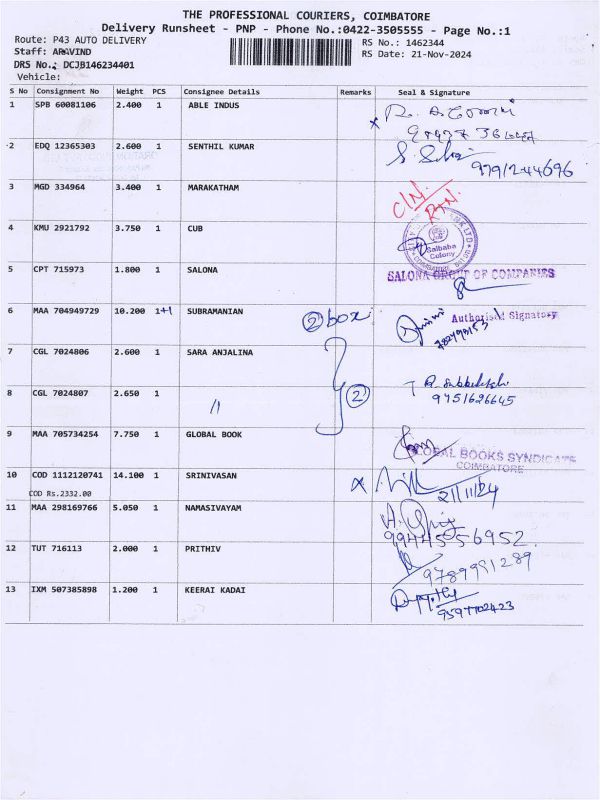 THE PROFESSIONAL COURIERS, COIMBATORE
Delivery Runsheet - PNP - Phone No.:0422-3505555 - Page No.:1
Route: P43 AUTO DELIVERY
RS No.: 1462344
Staff: ARAVIND
RS Date: 21-Nov-2024
DRS No.: DCJB146234401
Vehicle:
S No Consignment No Weight PCS Consignee Details Remarks Seal & Signature
1 SPB 60081106 2.400 1 ABLE INDUS
2 EDQ 12365303 2.600 1 SENTHIL KUMAR
9791244696
3 MGD 334964 3.400 1 MARAKATHAM
4 KMU 2921792 3.750 1 CUB
Saibaba
Colony
5 CPT 715973 1.800 1 SALONA
SALONA GROUP OF COMPANIES
6 MAA 704949729 10.200 1+1 SUBRAMANIAN 2 box
Authorised Signatory
7 CGL 7024806 2.600 1 SARA ANJALINA
8 CGL 7024807 2.650 1 〃 2
9751626645
9 MAA 705734254 7.750 1 GLOBAL BOOK
GLOBAL BOOKS SYNDICATE
COIMBATORE
10 COD 1112120741 14.100 1 SRINIVASAN
21/11/24
COD Rs.2332.00
11 MAA 298169766 5.050 1 NAMASIVAYAM
9944556952
12 TUT 716113 2.000 1 PRITHIV
9789991289
13 IXM 507385898 1.200 1 KEERAI KADAI
9597702423